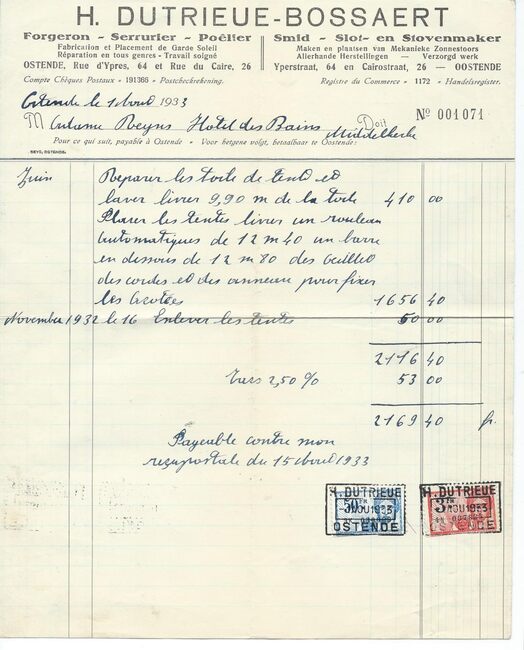 H. DUTRIEUE-BOSSAERT
Forgeron - Serrurier - Poêlier
Fabrication et Placement de Garde Soleil
Réparation en tous genres - Travail soigné
OSTENDE, Rue d'Ypres, 64 et Rue du Caire, 26
Smid - Slot- en Stovenmaker
Maken en plaatsen van Mekanieke Zonnestoors
Allerhande Herstellingen — Verzorgd werk
Yperstraat, 64 en Cairostraat, 26 — OOSTENDE
Compte Chèques Postaux - 191366 - Postcheckrekening.
Registre du Commerce - 1172 - Handelsregister.
Ostende le 1 Aout 1933
Nº 001071
M adame Reyns Hotel des Bains Doit
Middelkerke
Pour ce qui suit, payable à Ostende - Voor hetgene volgt, betaalbaar te Ostende:
Juin Reparer les toile de tente et
laver livrer 9,90 m de la toile 410 00
Placer les tentes livrer un rouleau
automatiques de 12 m 40 un barre
en dessous de 12 m 80 des
des cordes et des anneaux pour fixer
les 1656 40
November 1932 le 16 Enlever les tentes 50 00
2116 40
Taxs 2,50 % 53 00
2169 40 fr.
Payeable contre mon
reçu postale du 15 Aout 1933
H. DUTRIEUE
50
AOU 1933
OSTENDE
H. DUTRIEUE
3
AOU 1933
OSTENDE